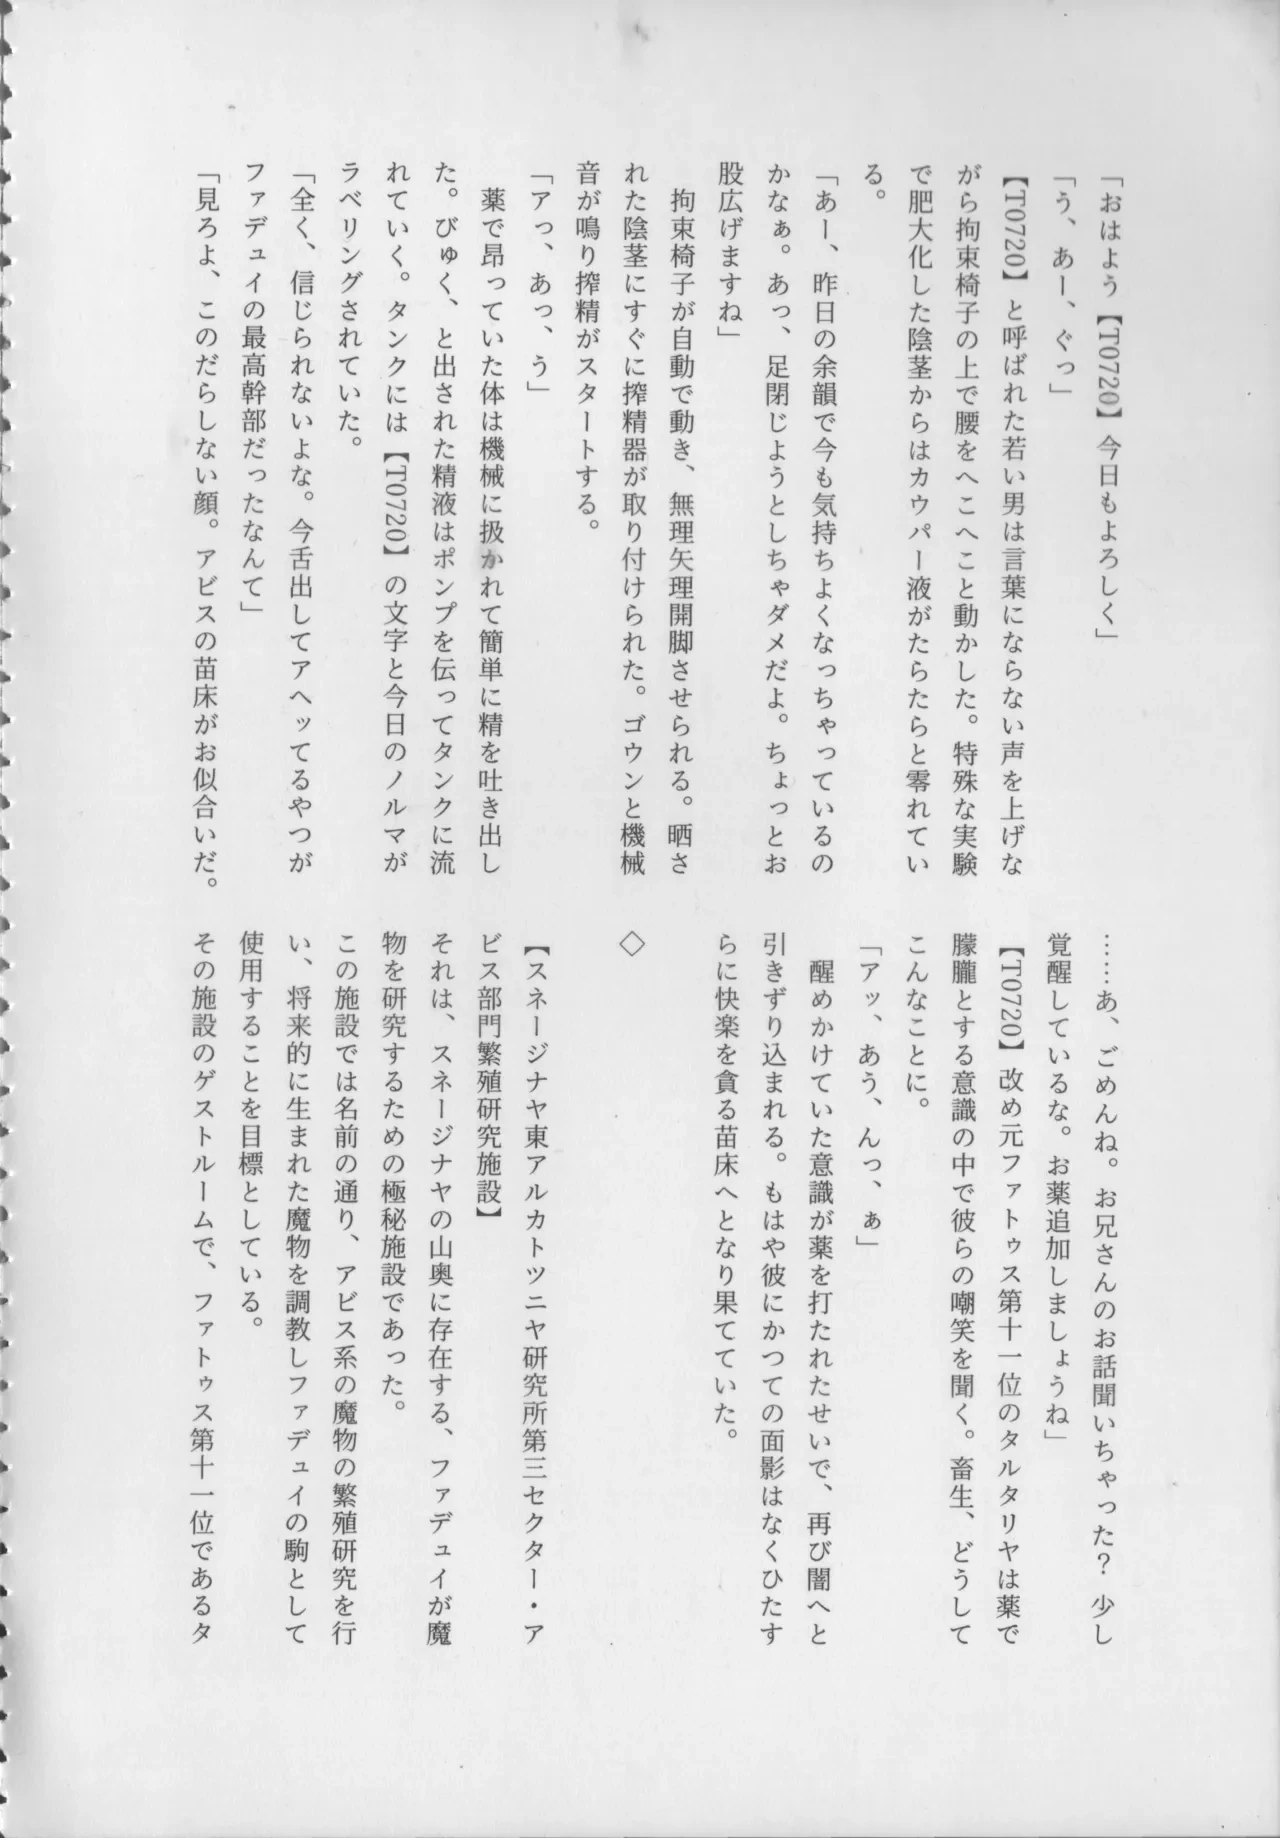 「おはよう【T0720】今日もよろしく」
「う、あー、ぐっ」
【T0720】と呼ばれた若い男は言葉にならない声を上げな
がら拘束椅子の上で腰をへこへこと動かした。特殊な実験
で肥大化した陰茎からはカウパー液がたらたらと零れてい
る。
「あー、昨日の余韻で今も気持ちよくなっちゃっているの
かなぁ。あっ、足閉じようとしちゃダメだよ。ちょっとお
股広げますね」
拘束椅子が自動で動き、無理矢理開脚させられる。晒さ
れた陰茎にすぐに搾精器が取り付けられた。ゴウンと機械
音が鳴り搾精がスタートする。
「アっ、あっ、う」
薬で昂っていた体は機械に扱かれて簡単に精を吐き出し
た。びゅく、と出された精液はポンプを伝ってタンクに流
れていく。タンクには【T0720】の文字と今日のノルマが
ラベリングされていた。
「全く、信じられないよな。今舌出してアヘッてるやつが
ファデュイの最高幹部だったなんて」
「見ろよ、このだらしない顔。アビスの苗床がお似合いだ。
……あ、ごめんね。お兄さんのお話聞いちゃった？ 少し
覚醒しているな。お薬追加しましょうね」
【T0720】改め元ファトゥス第十一位のタルタリヤは薬で
朦朧とする意識の中で彼らの嘲笑を聞く。畜生、どうして
こんなことに。
「アッ、あう、んっ、ぁ」
醒めかけていた意識が薬を打たれたせいで、再び闇へと
引きずり込まれる。もはや彼にかつての面影はなくひたす
らに快楽を貪る苗床へとなり果てていた。
◇
【スネージナヤ東アルカトツニヤ研究所第三セクター・ア
ビス部門繁殖研究施設】
それは、スネージナヤの山奥に存在する、ファデュイが魔
物を研究するための極秘施設であった。
この施設では名前の通り、アビス系の魔物の繁殖研究を行
い、将来的に生まれた魔物を調教しファデュイの駒として
使用することを目標としている。
その施設のゲストルームで、ファトゥス第十一位であるタ